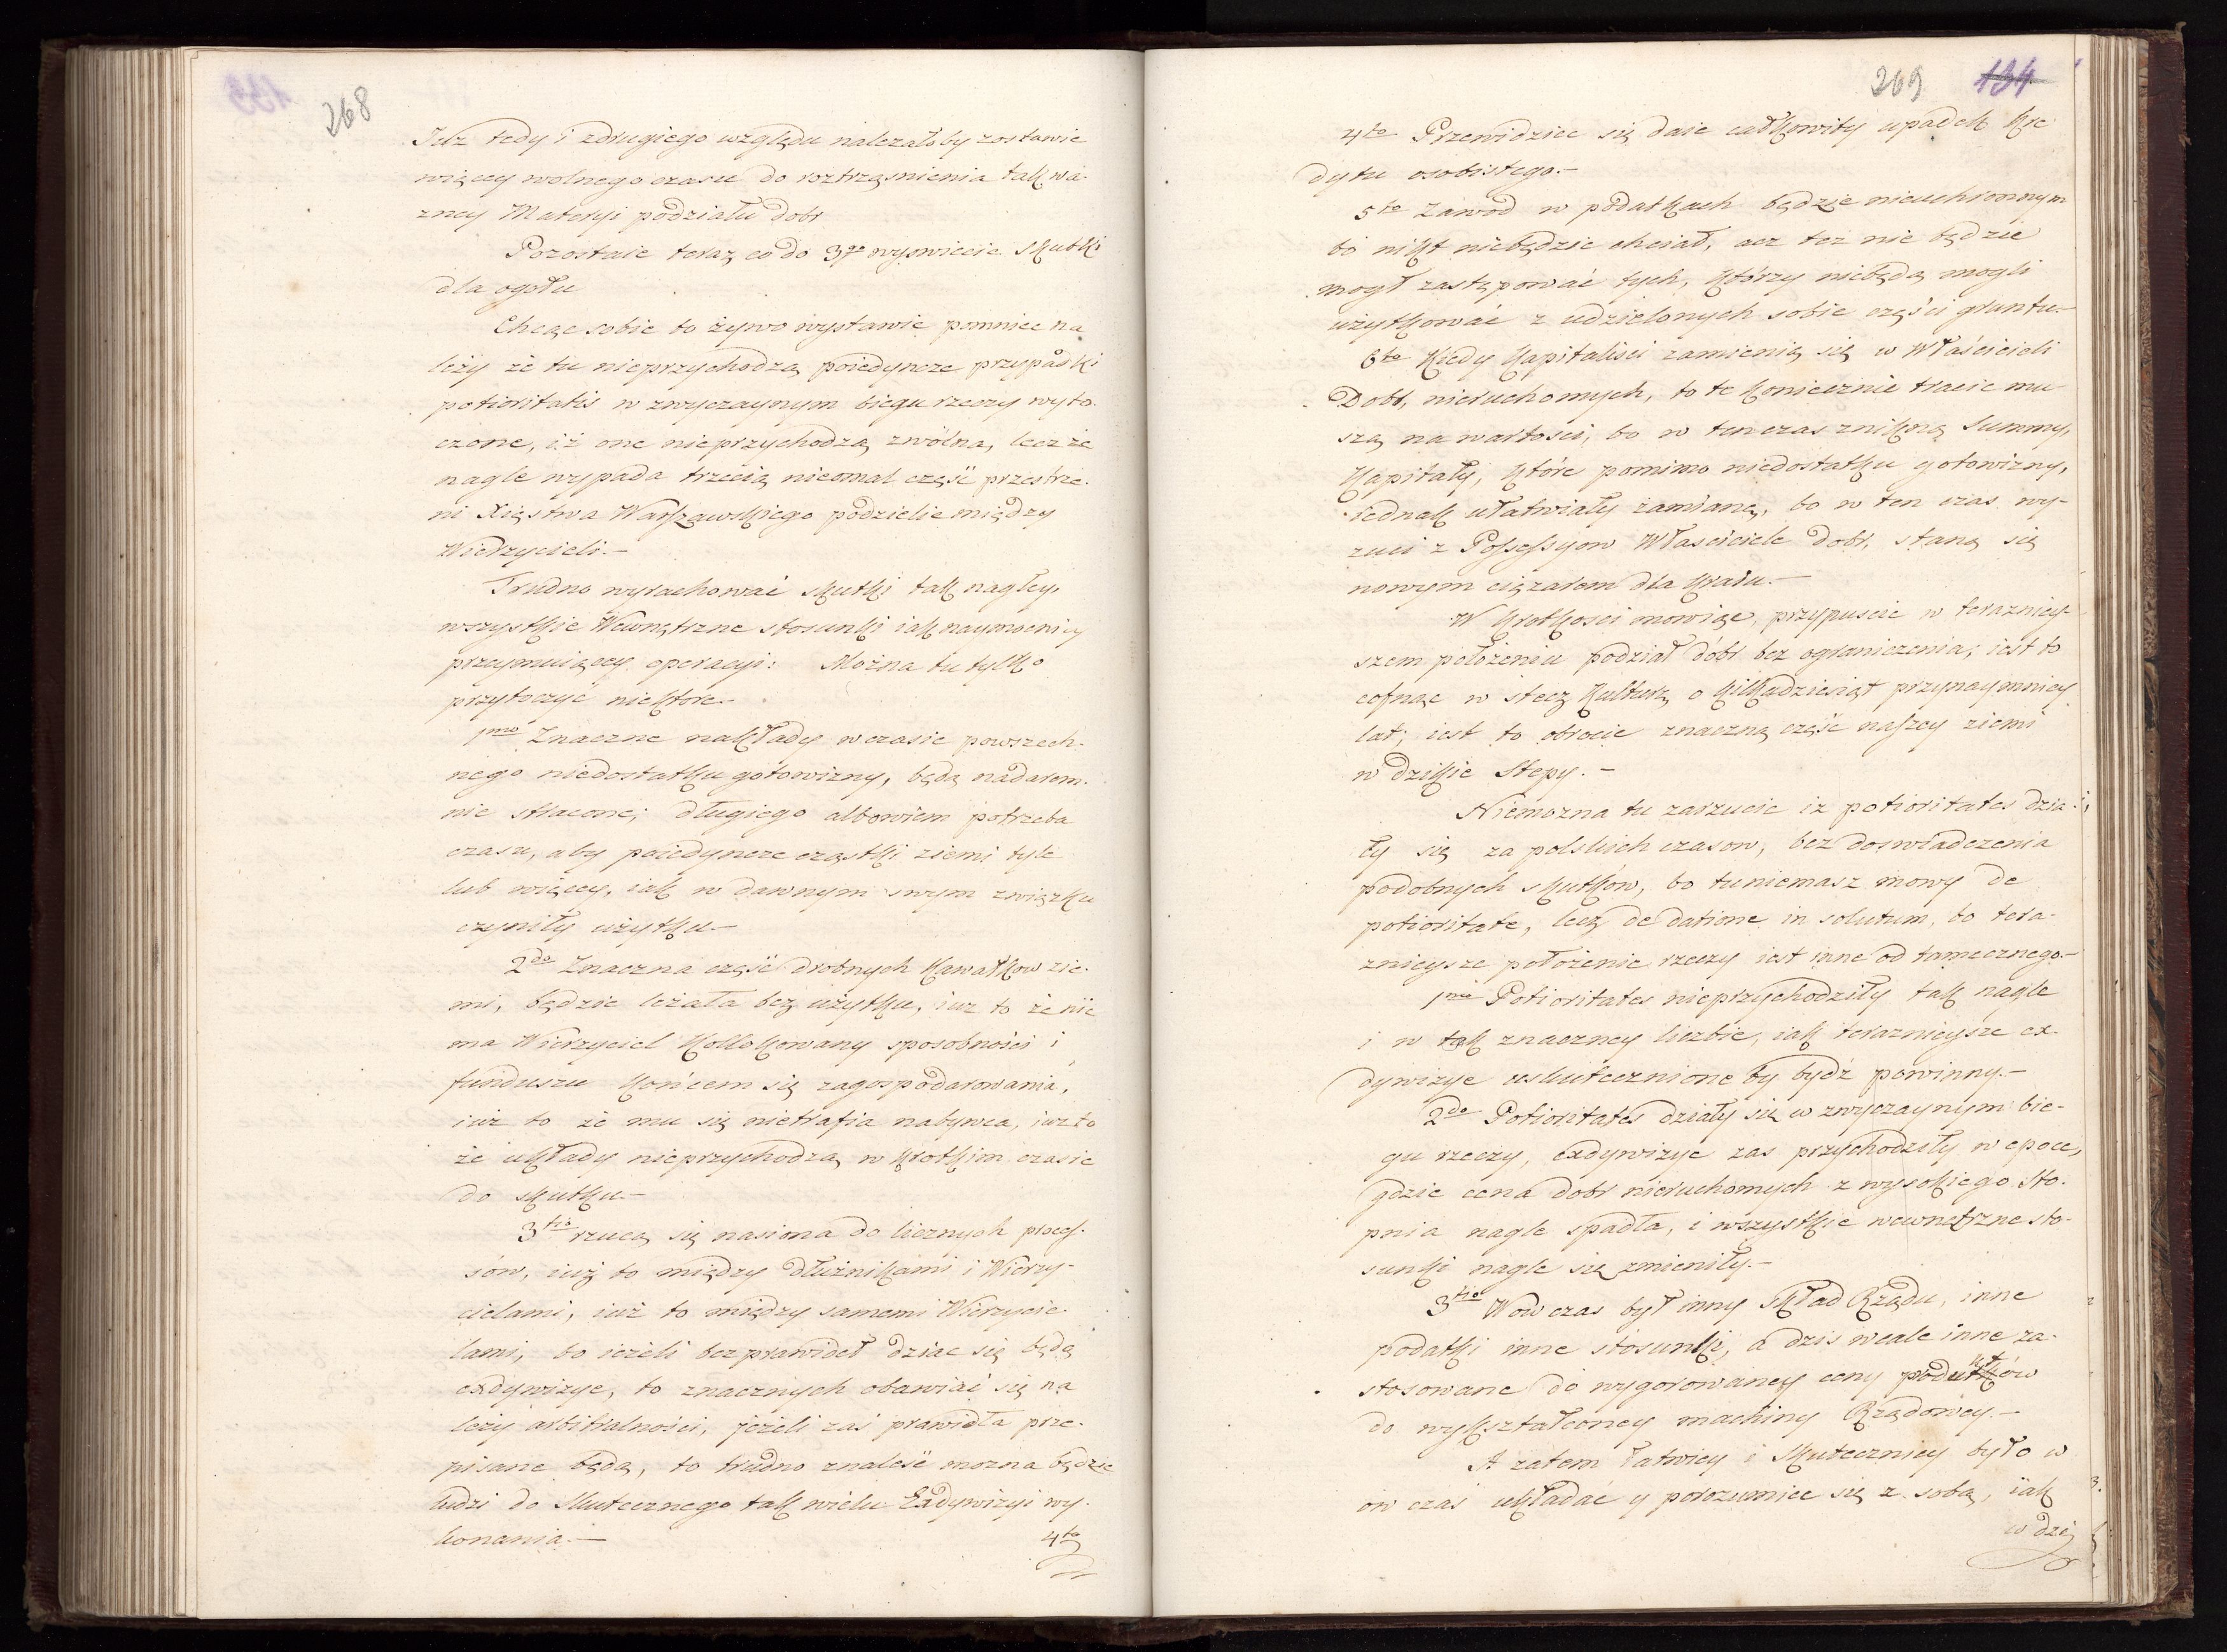 268
Juz tedy i zdrugiego względu należałoby zostawić
więcey wolnego czasu do roztrząśnienia tak wa-
zney Materyi podziału dobr
Pozostaie teraz co do 3go wyswiecić skutki
dla ogołu
Chcąc sobie to żywo wystawić pomnieć na
leży że tu nieprzychodzą poiedyncze przypadki
potioritatis w zwyczaynym biegu rzeczy wyto-
czone, iż one nieprzychodzą zwolna, lecz że
nagle wypada trzecią nieomal część przestrze-
ni Xięstwa Warszawskiego podzielić między
Wierzycieli.—
Trudno wyrachować skutki tak nagłey,
wszystkie Wewnętrzne stosunki iak naymocniey
przeymuiącey operacyi: Można tu tylko
przytoczyć niektore.—
1mo Znaczne nakłady w czasie powszech-
nego niedostatku gotowizny, będą nadarem-
nie stracone; długiego albowiem potrzeba
czasu, aby poiedyncze cząstki ziemi tyle
lub więcey, iak w dawnym swym związku
czyniły użytku—
2do Znaczna część drobnych kawałkow zie-
mi, będzie leżała bez użytku, iuż to że nie
ma Wierzyciel kollokowany sposobności i
funduszu końcem się zagospodarowania,
iuż to że mu się nietrafia nabywca, iuż to
że układy nieprzychodzą w krotkim czasie
do skutku—
3tio rzucą się nasiona do licznych proces-
sów, iuż to między dłużnikami i Wierzy-
cielami, iuż to między samemi Wierzycie-
lami, bo ieżeli bez prawideł dziać się będą
exdywizye, to znacznych obawiać się na
leży arbitralności, jeżeli zaś prawidła prze-
pisane będą, to trudno znaleść mozna będzie
ludzi do skutecznego tak wielu Exdywizyi wy-
konania.—
4to
269 134
4to Przewidzieć się daie całkowity upadek kre
dytu osobistego.—
5to Zawod w podatkach będzie nieuchronnym
bo nikt niebędzie chciał, acz też nie będzie
mogł zastępować tych, którzy niebędą mogli
użytkować z udzielonych sobie części gruntu.—
6to Kiedy kapitaliści zamienią się w Właścicieli
Dobr, nieruchomych, to te koniecznie tracić mu
szą na wartości, bo w tenczas znikną Summy,
kapitały, które pomimo niedostatku gotowizny,
iednak ułatwiały zamianę, bo w ten czas wy-
zuci z Possessyow Właściciele dobr, staną się
nowym ciężarem dla kraiu.—
W krotkości mowiąc, przypuscić w teraźniey-
szem położeniu podział dóbr bez ograniczenia; iest to
cofnąć w stecz kulturę o kilkadziesiąt przynaymniey
lat; iest to obrocić znaczną część naszey ziemi
w dzikie Stepy.—
Niemożna tu zarzucić iż potioritates dzia-
ły się za polskich czasow, bez doswiadczenia
podobnych skutkow, bo tu niemasz mowy de
potioritate, lecz de datione in solutum, bo tera-
znieysze położenie rzeczy iest inne od tamecznego.—
1mo Potioritates nieprzychodziły tak nagle
i w tak znaczney liczbie, iak teraznieysze ex-
dywizye uskutecznione by bydź powinny.—
2do Potioritates działy się w zwyczaynym bie-
gu rzeczy, exdywizye zas przychodziły w epoce,
gdzie cena dobr nieruchomych z wysokiego sto-
pnia nagle spadła, i wszystkie wewnętrzne sto-
sunki nagle się zmieniły.—
3tio Wow czas był inny skład Rządu, inne
podatki inne stosunki, a dzis wcale inne za-
stosowane do wygorowaney ceny produktów
do wykształconey machiny Rządowey.—
A zatem łatwiey i skuteczniey było w
ow czas układać y porozumieć się z sobą, iak
w dzi